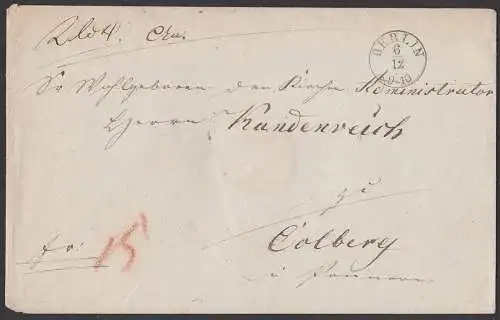 BERLIN
6
12
9-10
Sr Wohlgeboren den Kirchen Administrator
Herrn Kundenreich
zu
Colberg
in Pommern
fr: 15